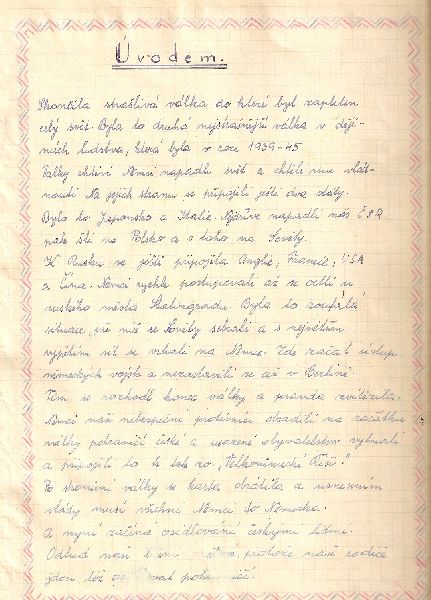 Úvodem.
Skončila strašlivá válka do které byl zapleten
celý svět. Byla to druhá nejstrašnější válka v ději-
nách lidstva, která byla v roce 1939-45
chtiví Němci napadli svět a chtěli mu vlád-
nouti Na jejich stranu se připojily ještě dva státy.
Bylo to Japonsko a Itálie. Nejdříve napadli nás ČSR
pak šli na Polsko a z toho na Sověty.
K Rusku se ještě připojila Anglie, Francie, USA
a Čína. Němci rychle postupovali až se octli u
ruského města Stalingradu. Byla to zoufalá
situace, již niž se Sověty setkali a s největším
vypětím sil se vrhali na Němce. Zde začal ústup
německých vojsk a nezastavili se až v Berlíně.
Tím se rozhodl konec války a pravda zvítězila.
Němci naši nebezpeční protivníci obsadili na začátku
války pohraničí české a usazené obyvatelstvo vyhnali
a připojili to k tak zv. „Velkoněmecké Říši."
Po skončení války se karta obrátila a usnesením
vlády musí všichni Němci do Německa.
A nyní začíná osidlování českými lidmi.
Odtud naší protože naši rodiče
jdou též